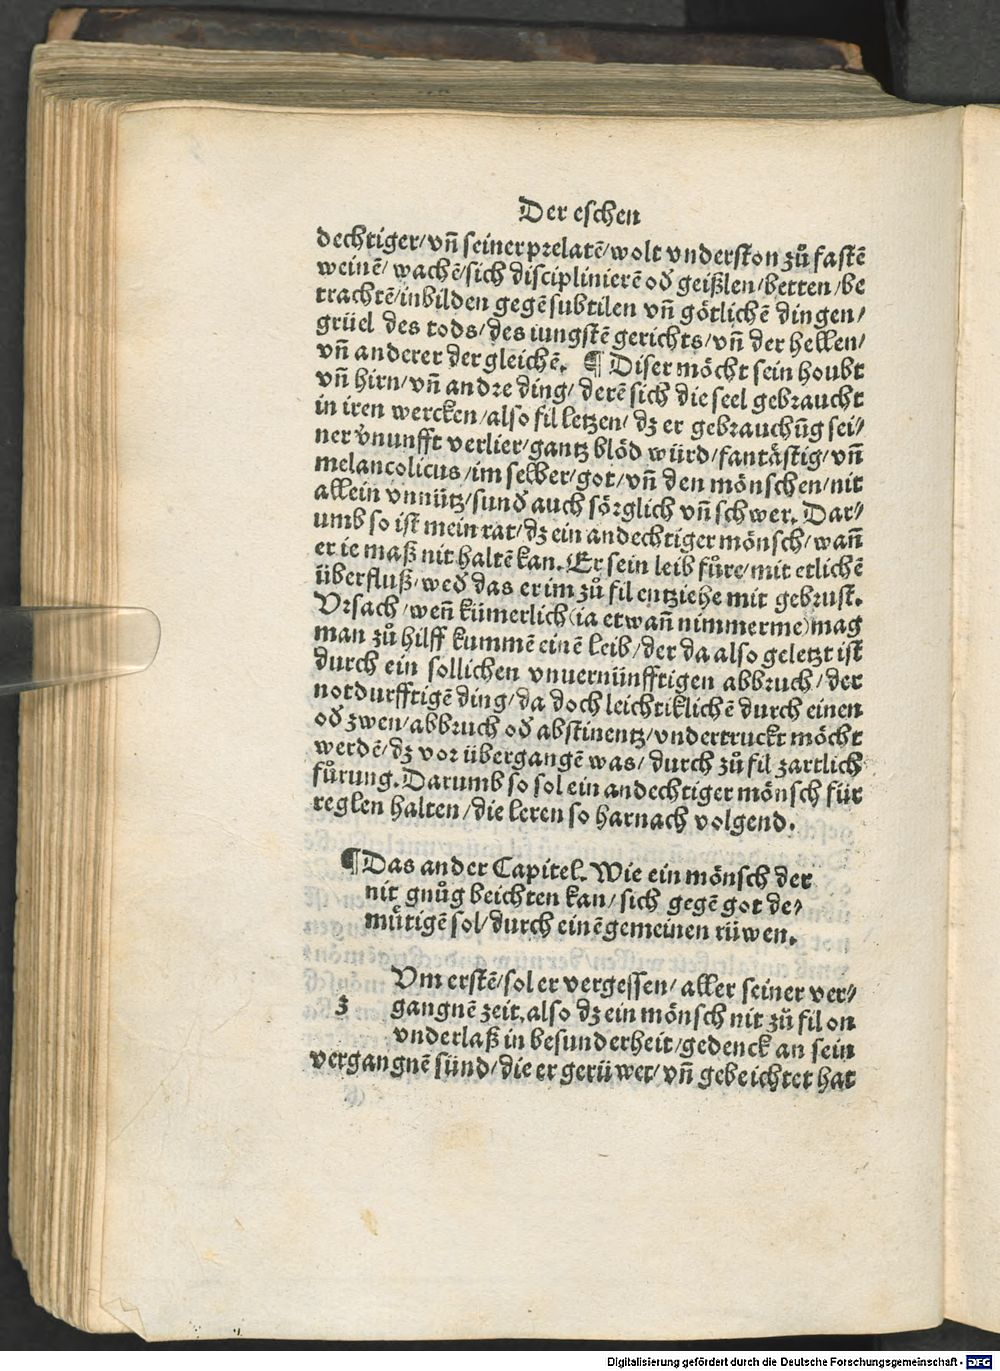 Der eschen
dechtiger/ vñ seiner prelatē/ wolt vnderston zů fastē
weinē/ wachē/ sich disciplinierē oď geißlen/ betten/ be
trachtē/ inbilden gegē subtilen vñ götlichē dingen/
grüel des tods/ des iungstē gerichts/ vñ der hellen/
vñ anderer der gleichē. ¶ Diser möcht sein houbt
vñ hirn/ vñ andre ding/ derē sich die seel gebraucht
in iren wercken/ also fil letzen/ dz er gebrauchūg sei⸗
ner v̄nunfft verlier/ gantz blöd würd/ fantästig/ vñ
melancolicus/ im selber/ got/ vñ den mönschen/ nit
allein vnnütz/ sunď auch sörglich vñ schwer. Dar⸗
umb so ist mein rat/ dz ein andechtiger mönsch/ wañ
er ie maß nit haltē kan. Er sein leib fůre/ mit etlichē
überfluß/ weď das er im zů fil entziehe mit gebrust.
Vrsach/ weñ kümerlich (ia etwañ nimmerme) mag
man zů hilff kummē einē leib/ der da also geletzt ist
durch ein sollichen vnuernünfftigen abbruch/ der
notdurfftigē ding/ da doch leichtiklichē durch einen
oď zwen/ abbruch oď abstinentz/ vndertruckt möcht
werdē/ dz vor übergangē was/ durch zů fil zartlich
fůrung. Darumb so sol ein andechtiger mönsch für
reglen halten/ die leren so harnach volgend.
¶ Das ander Capitel. Wie ein mönsch der
nit gnůg beichten kan/ sich gegē got de⸗
můtigē sol/ durch einē gemeinen rüwen.
Vm erstē/ sol er vergessen/ aller seiner ver⸗
z gangnē zeit, also dz ein mönsch nit zů fil on
vnderlaß in besunderheit/ gedenck an sein
vergangnē sünd/ die er gerüwet/ vñ gebeichtet hat
Digitalisierung gefördert durch die Deutsche Forschungsgemeinschaft - DFG